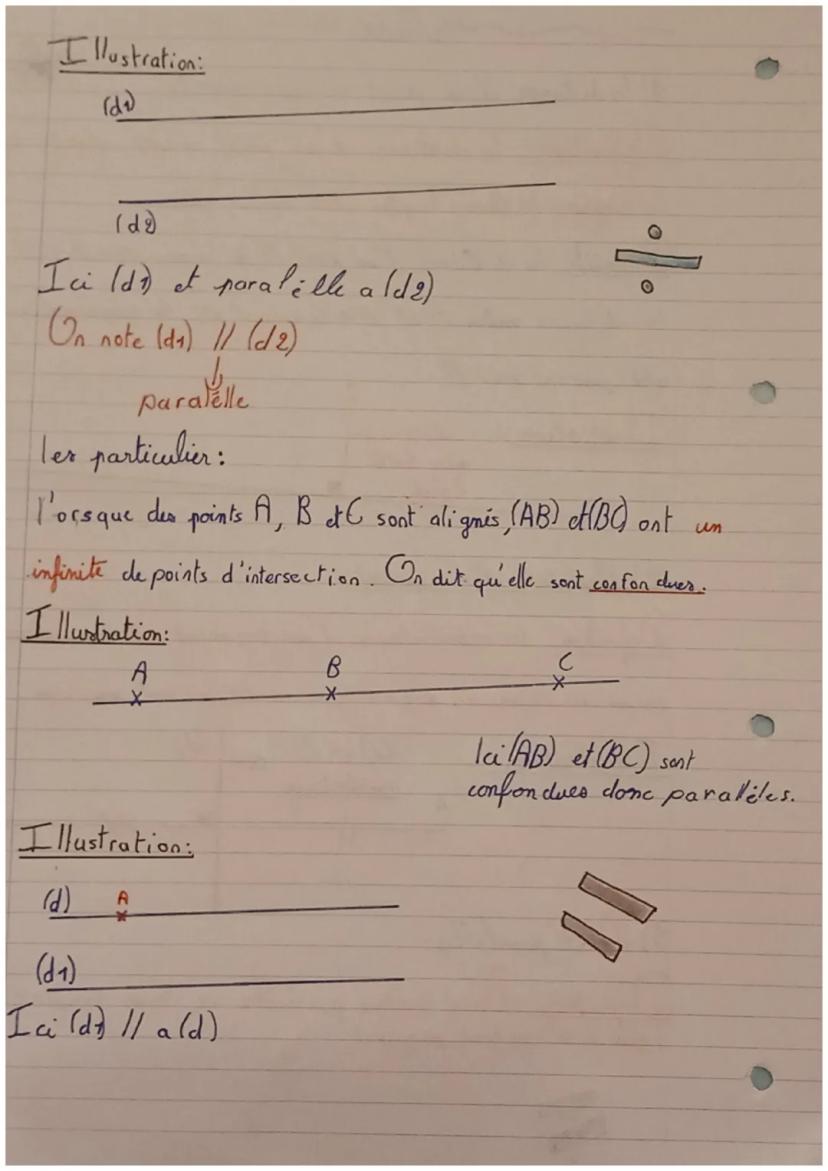 Illustration:
(d1)
(d2)
Ici (d1) et paralèlle a (d2)
On note (d1) // (d2)
paralèlle
les particulier:
l'orsque des points A, B et C sont alignés, (AB) et (BC) ont un
infinité de points d'intersection. On dit qu'elle sont confondues.
Illustration:
A B C
Ici (AB) et (BC) sont
confondues donc parallèles.
Illustration:
(d) A
(d1)
Ici (d1) // a (d)